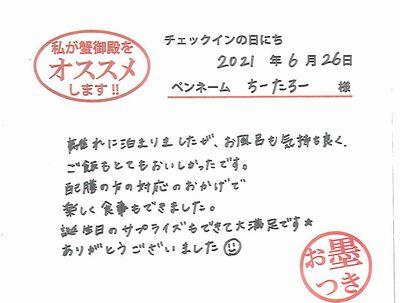 私が蟹御殿を
オススメ
します!!
チェックインの日にち
2021 年 6 月 26 日
ペンネーム ちーたろー 様
離れに泊まりましたが、お風呂も気持ち良く、
ご飯もとてもおいしかったです。
配膳の方の対応のおかげで
楽しく食事もできました。
誕生日のサプライズもできて大満足です★
ありがとうございました☺
お墨つき